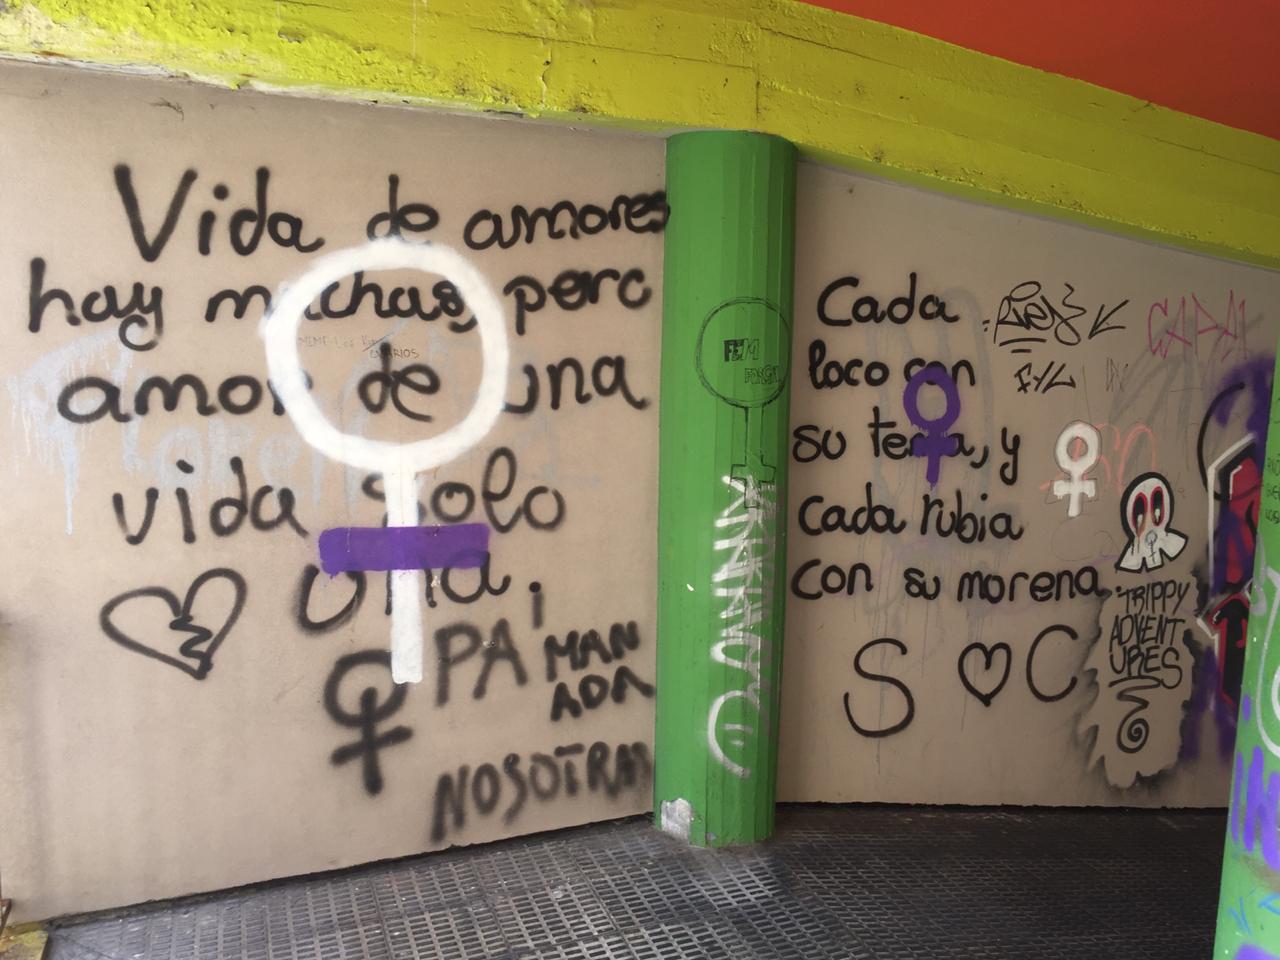 Vida de amores
hay muchas, pero
amor de una
vida solo
una.
PA' MAN
ADA
NOSOTRAS
FEM
Cada
loco con
su tema, y
cada rubia
con su morena.
S C
TRIPPY
ADVENT
URES